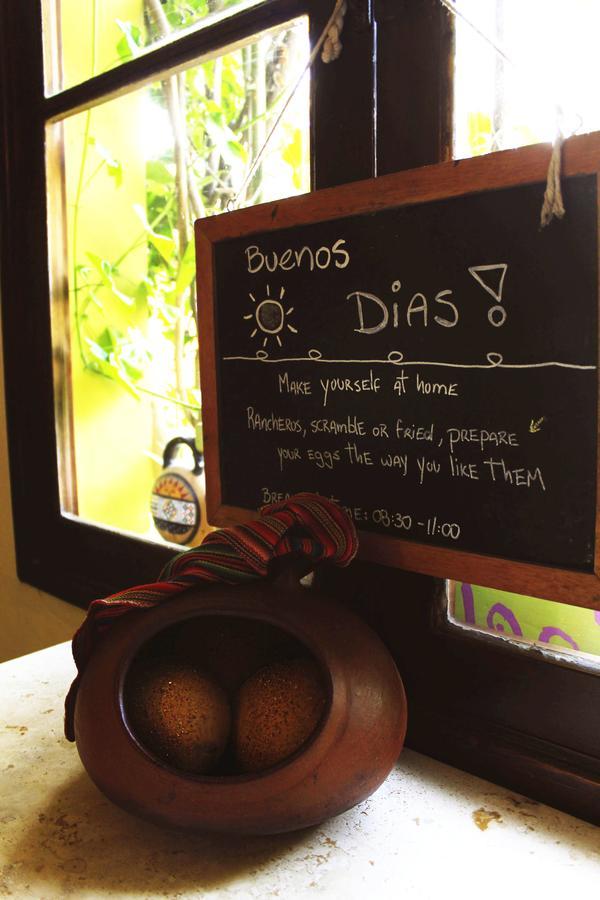 Buenos
DiAS!
MAKE yourself at home
RANCHEROS, SCRAMBLE OR fRiEd, PREPARE
your eggs the way you like THEM
08:30 -11:00